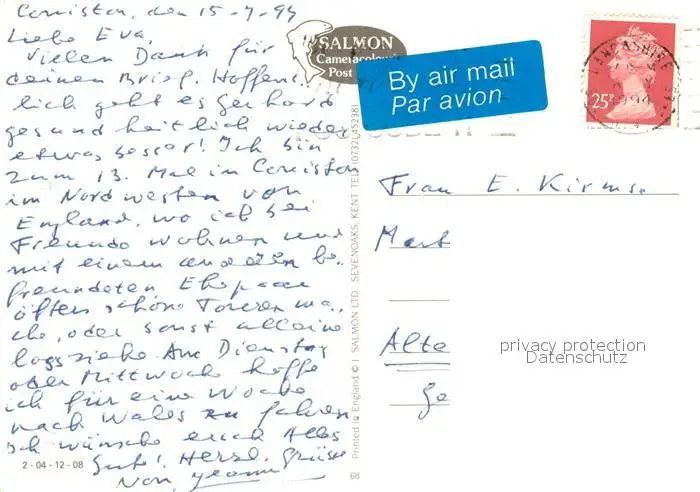 Coniston, den 15-7-94
Liebe Eva,
Vielen Dank für
deinen Brief. Hoffent-
lich geht es Gerhard
gesundheitlich wieder
etwas besser! Ich bin
zum 13. Mal in Coniston
im Nordwesten von
England, wo ich bei
Freunde wohnen und
mit einem anderen be-
freundeten Ehepaar
öfters schöne Touren ma-
che, oder sonst alleine
losziehe. Am Dienstag
oder Mittwoch hoffe
ich für eine Woche
nach Wales zu fahren
Ich wünsche euch Alles
Gute! Herzl. Grüsse
Von
2-04-12-08
SALMON
Cameracolour
Post
By air mail
Par avion
LANCASHIRE
25P
Printed in England © J SALMON LTD. SEVENOAKS, KENT TEL (0732) 452381
68
Frau E. Kirmse
Mart
Alte
Ge
privacy protection
Datenschutz